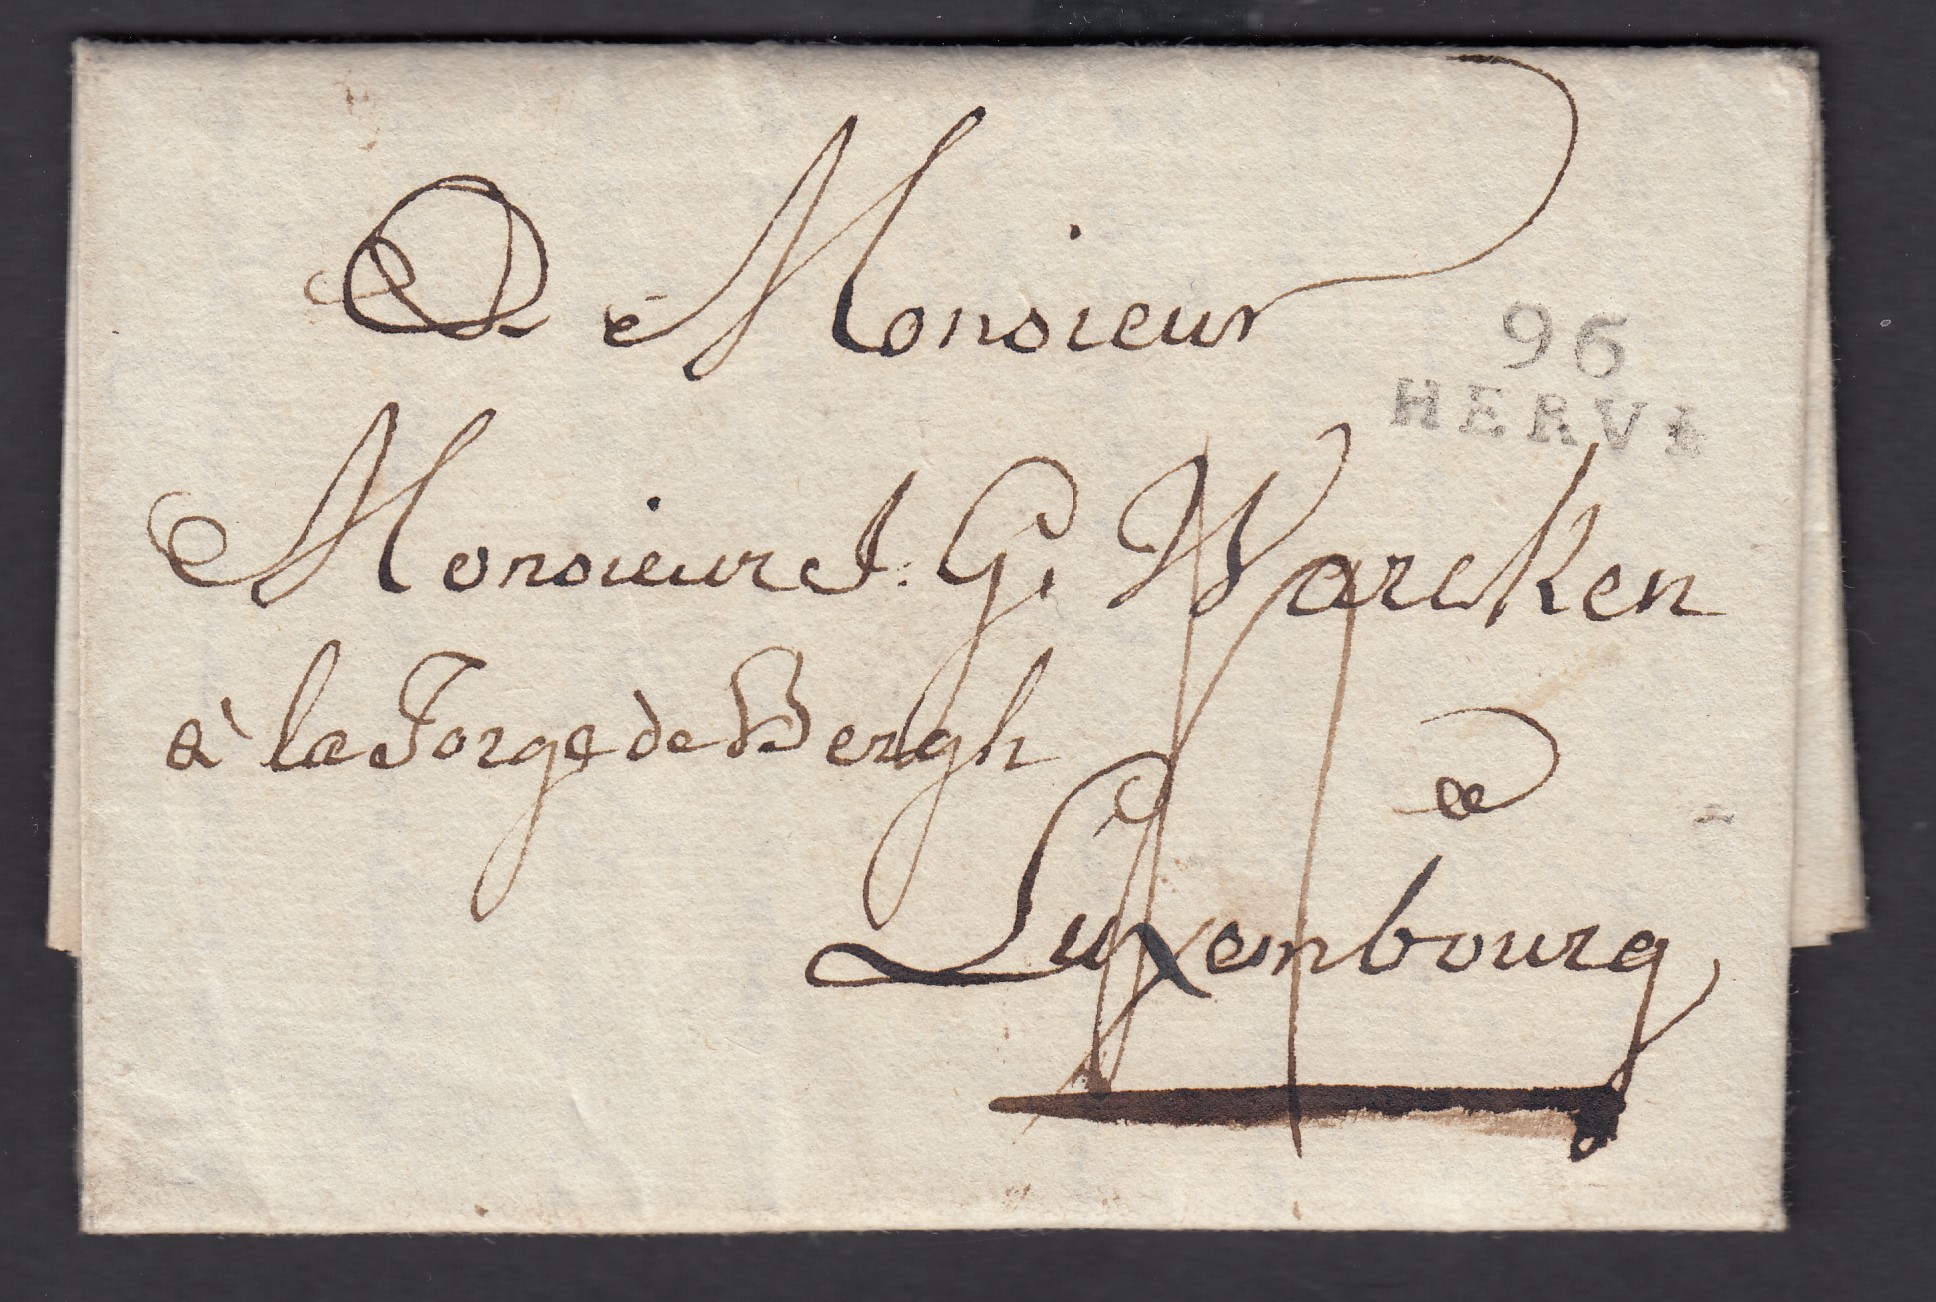 A Monsieur
96
HERVE
Monsieur J. G. Warcken
à la Forge de Bergh
a
Luxembourg